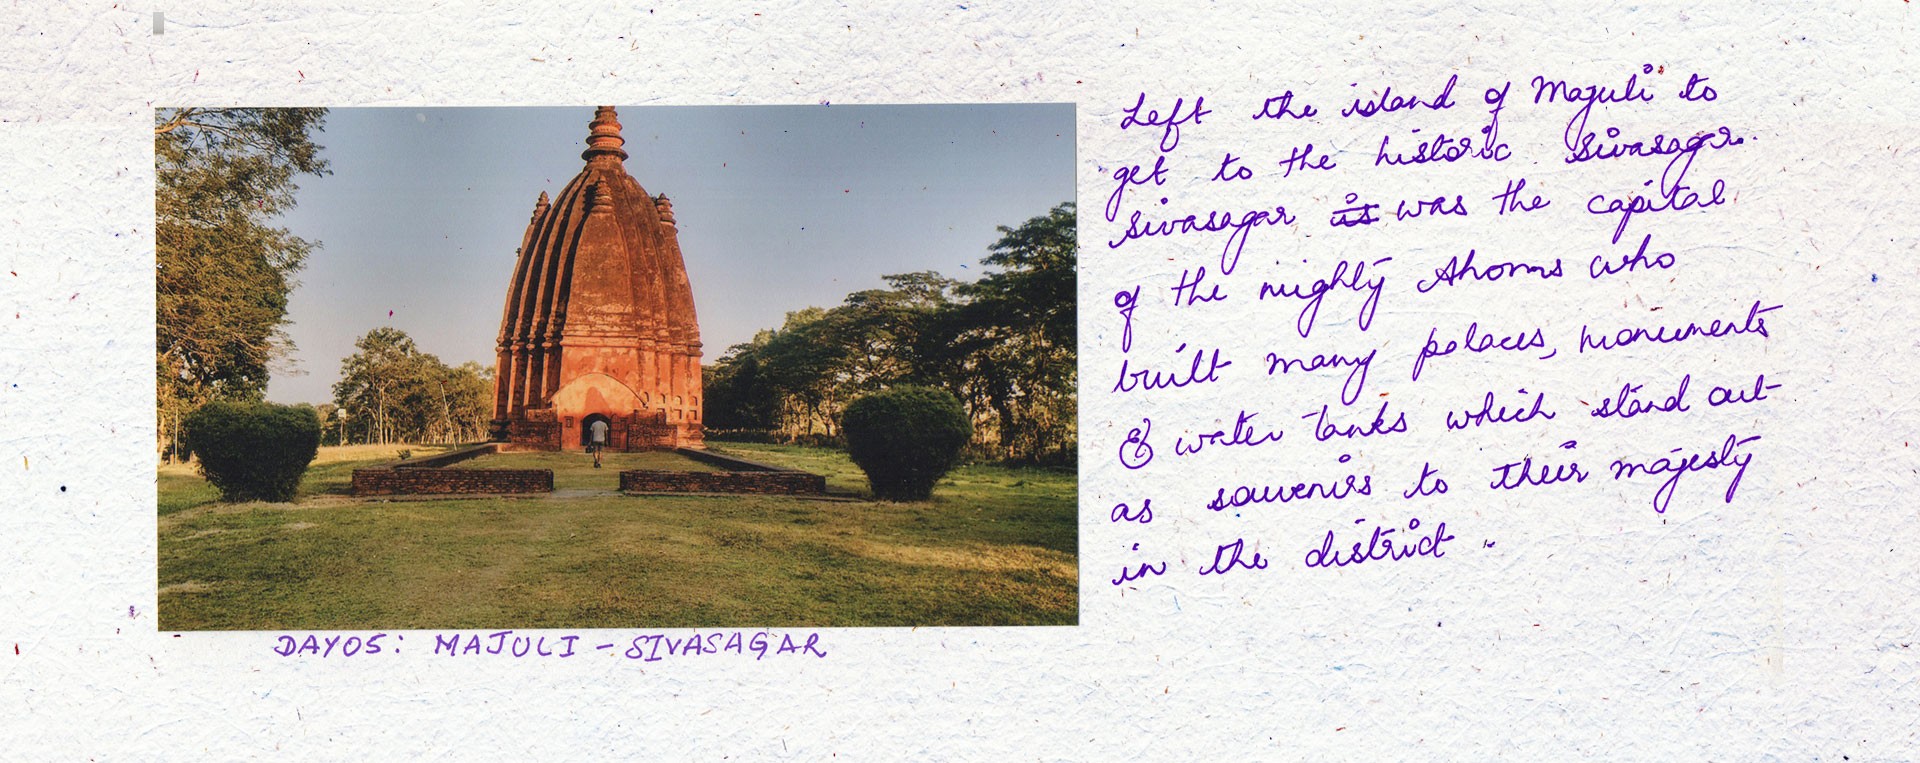 Left the island of Majuli to
get to the historic Sivasagar.
Sivasagar is was the capital
of the mighty Ahoms who
built many palaces, monuments
& water tanks which stand out
as souvenirs to their majesty
in the district.
DAY05: MAJULI - SIVASAGAR